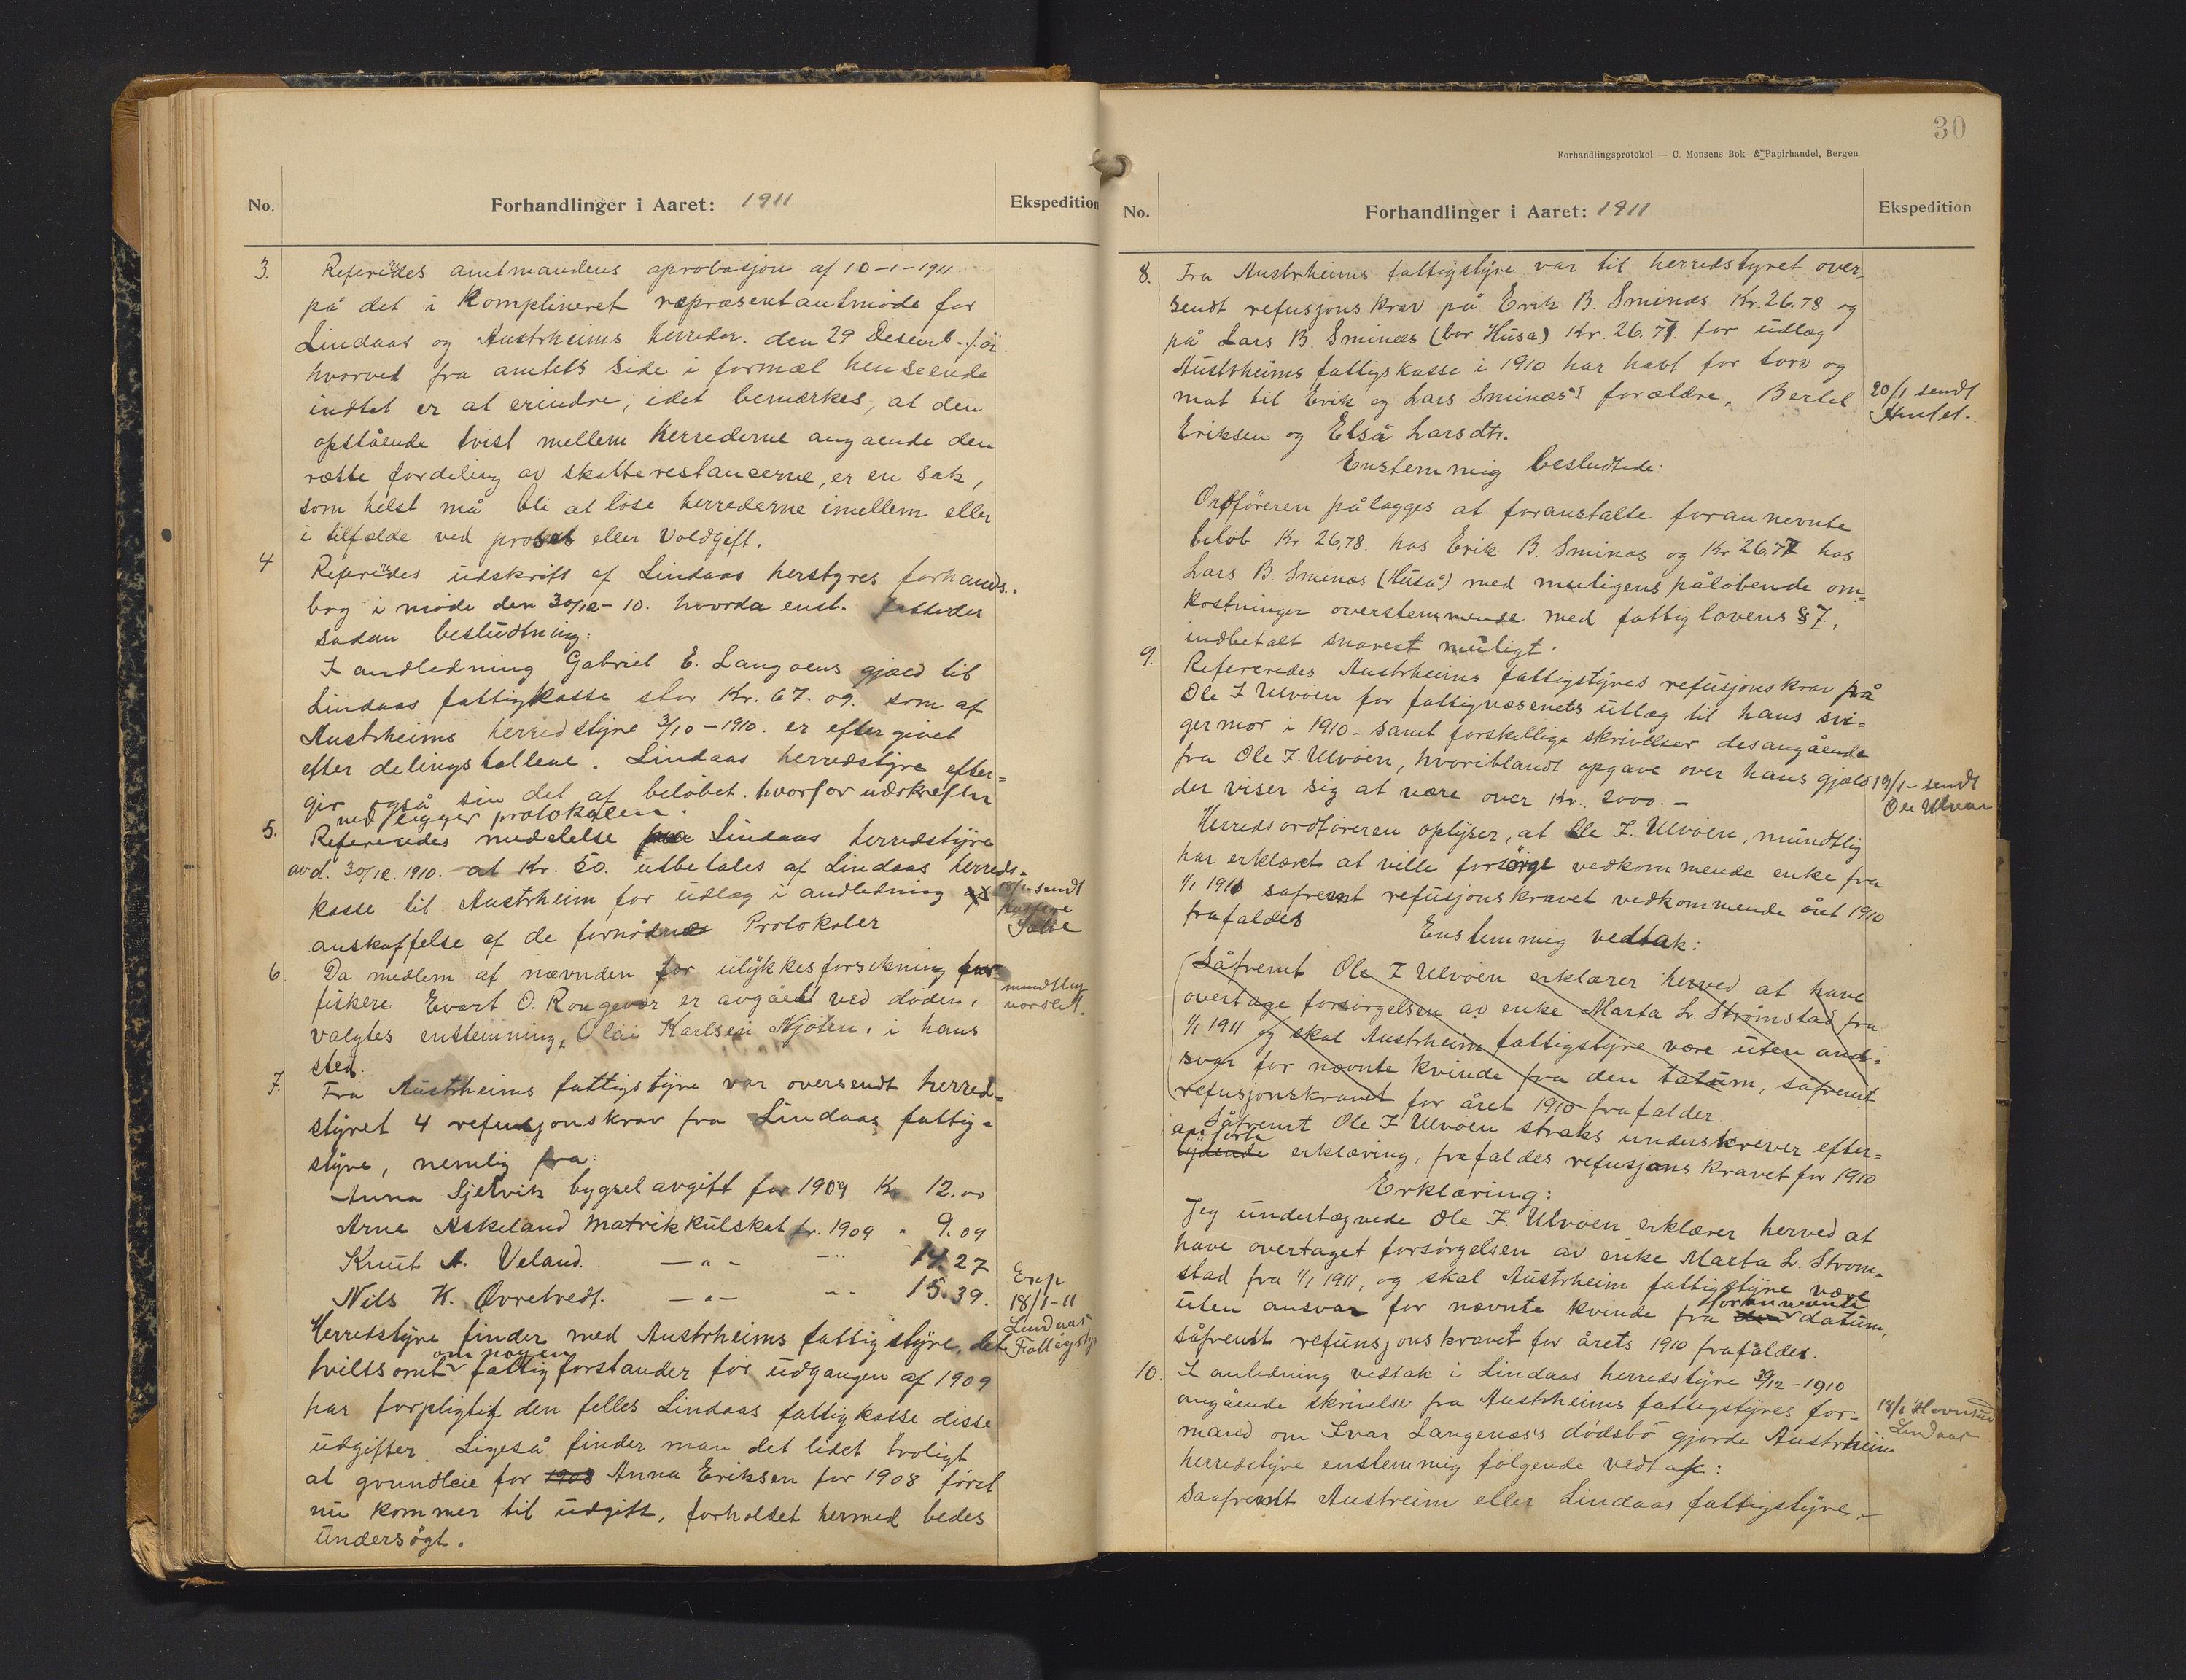 No. Forhandlinger i Aaret: 1911 Ekspedition
3. Refereredes amtmandens aprobasjon af 10-1-1911
på det i Komplineret repræsentantmøde for
Lindaas og Austrheims herreder. den 29 Desemb. f.år.
hvorved fra amtets side i formæl henseende
indtet er at erindre, idet bemærkes, at den
opstående tvist mellem Herrederne angaende den
rette fordeling av skatterestancerne, er en sak,
som helst må bli at løse herrederne imellem eller
i tilfælde ved proses eller Voldgift.
4 Refereredes udskrift af Lindaas herstyres forhands.
bog i møde den 30/12-10. hvorda enst. fattedes
sadan besludtning:
I andledning Gabriel E. Langøens gjæld til
Lindaas fattigkasse stor Kr. 67.09. som af
Austrheims herredstyre 3/10-1910. er eftergivet
efter delingstallene. Lindaas herredstyre efter=
gir også sin del af beløbet. hvorfor udskriften
vedligger protokolen.
5. Refereredes meddelelse fra Lindaas herredstyre
avd. 30/12. 1910. at Kr. 50. utbetales af Lindaas herreds-
kasse til Austrheim for udlæg i andledning af
anskaffelse af de fornødne Protokoler
18/1 sendt
Kassere
6. Da medlem af nævnden for ulykkesforsikning for
fiskere Evart O. Rongevær er avgået ved døden,
valgtes enstemning, Olai Karlsen Njøten. i hans
sted.
mundtlig
varslet.
7. Fra Austrheims fattigstyre var oversendt herred=
styret 4 refusjonskrav fra Lindaas fattig-
styre, nemlig fra:
Anna Sjelvik bygselavgift for 1909 Kr 12.00
Arne Askeland Matrikkulskat fr. 1909 " 9.09
Knut A. Veland. —"— —"— 14.27
Nils K. Øvretvedt. —"— —"— 15.39.
Herredstyre finder med Austrheims fattigstyre, det
tviltsomt om nogen fattigforstander før udgangen af 1909
har forpligtit den felles Lindaas fattigkasse disse
udgifter. Ligeså finder man det lidet troligt
at grundleie for 1908 Anna Eriksen for 1908 først
nu kommer til udgift, forholdet hermed bedes
undersøgt.
Exp
18/1-11
Lindaas
Fattigsty
30
Forhandlingsprotokol — C. Monsens Bok- & Papirhandel, Bergen
No. Forhandlinger i Aaret: 1911 Ekspedition
8. Fra Austrheims fattigstyre var til herredstyret over-
sendt refusjonskrav på Erik B. Sminæs Kr. 26.78 og
på Lars B. Sminæs (bor Husa) Kr. 26.77. for udlæg
Austrheims fattigskasse i 1910 har havt for torv og
mat til Erik og Lars Sminæs's forældre, Bertel
Eriksen og Elsa Larsdtr.
20/1 sendt
Amtet.
Enstemmig besludtede:
Ordføreren pålægges at foranstalte forannevnte
beløb Kr. 26.78. hos Erik B. Sminæs og Kr 26.77 hos
Lars B. Sminæs (Husa) med muligens påløbende om=
kostninger overstemmende med fattiglovens §7,
indbetalt snarest muligt.
9. Refereredes Austrheims fattigstyres refusjonskrav på
Ole I Ulvøen for fattigvæsenets utlæg til hans svi=
germor i 1910 - samt forskellige skrivelser desangående
fra Ole I. Ulvøen, hvoriblandt opgave over hans gjæld
der viser sig at være over Kr. 2000.-
19/1 - sendt
Ole Ulvøen
Herredsordføreren oplyser, at Ole I. Ulvøen, mundtlig
har erklæret at ville forsørge vedkommende enke fra
1/1 1911 safremt refusjonskravet vedkommende året 1910
frafaldes
Enstemmig vedtak:
Såfremt Ole I Ulvøen erklærer herved at have
overtage forsørgelsen av enke Marta L. Strømstad fra
1/1 1911 og skal Austrheim fattigstyre være uten and=
svar for nævnte kvinde fra den tatum, såfremt
refusjonskravet for året 1910 frafalder.
Såfremt Ole I Ulvøen straks underskriver efter=
anførte
lydende erklæring, frafaldes refusjonskravet for 1910
Erklæring:
Jeg undertegnede Ole I. Ulvøen erklærer herved at
have overtaget forsørgelsen av enke Marta L. Strøm-
stad fra 1/1 1911, og skal Austrheim fattigstyre være
uten ansvar for nævnte kvinde fra den forannevnte datum,
såfremt refunsjonskravet for årets 1910 frafaldes.
10. I anledning vedtak i Lindaas herredstyre 30/12-1910
angående skrivelse fra Austrheims fattigstyres for-
mand om Ivar Langenæs's dødsbo gjorde Austrheim
herredstyre enstemmig følgende vedtak:
Saafremt Austreim eller Lindaas fattigstyre -
18/1
Lindaas